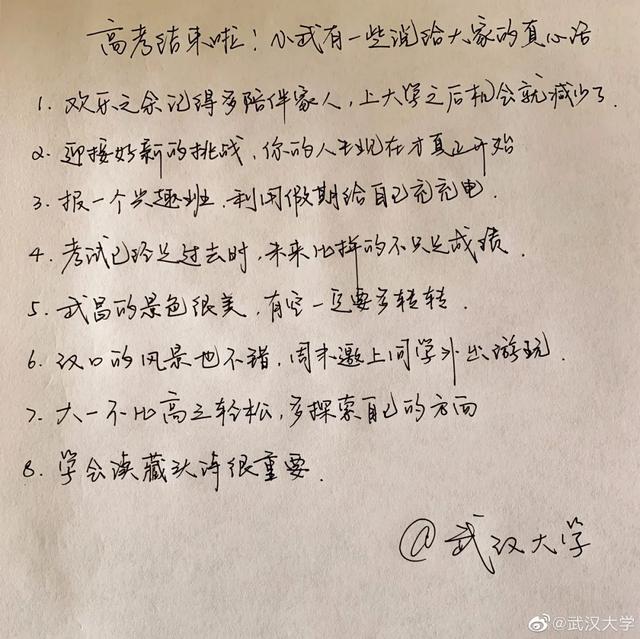 高考结束啦！小武有一些说给大家的真心话
1. 欢乐之余记得多陪伴家人，上大学之后机会就减少了.
2. 迎接好新的挑战，你的人生现在才真正开始
3. 报一个兴趣班，利用假期给自己充充电.
4. 考试已经是过去时，未来比拼的不只是成绩.
5. 武昌的景色很美，有空一定要多转转.
6. 汉口的风景也不错，周末邀上同学外出游玩.
7. 大一不比高三轻松，多探索自己的方面
8. 学会读藏头诗很重要.
@武汉大学
@武汉大学